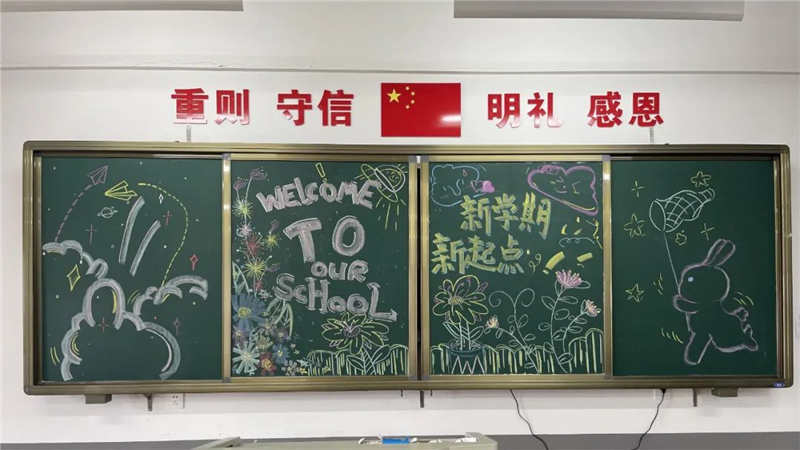 重则 守信 明礼 感恩
WELCOME
TO
OUR
SCHOOL
新学期
新起点